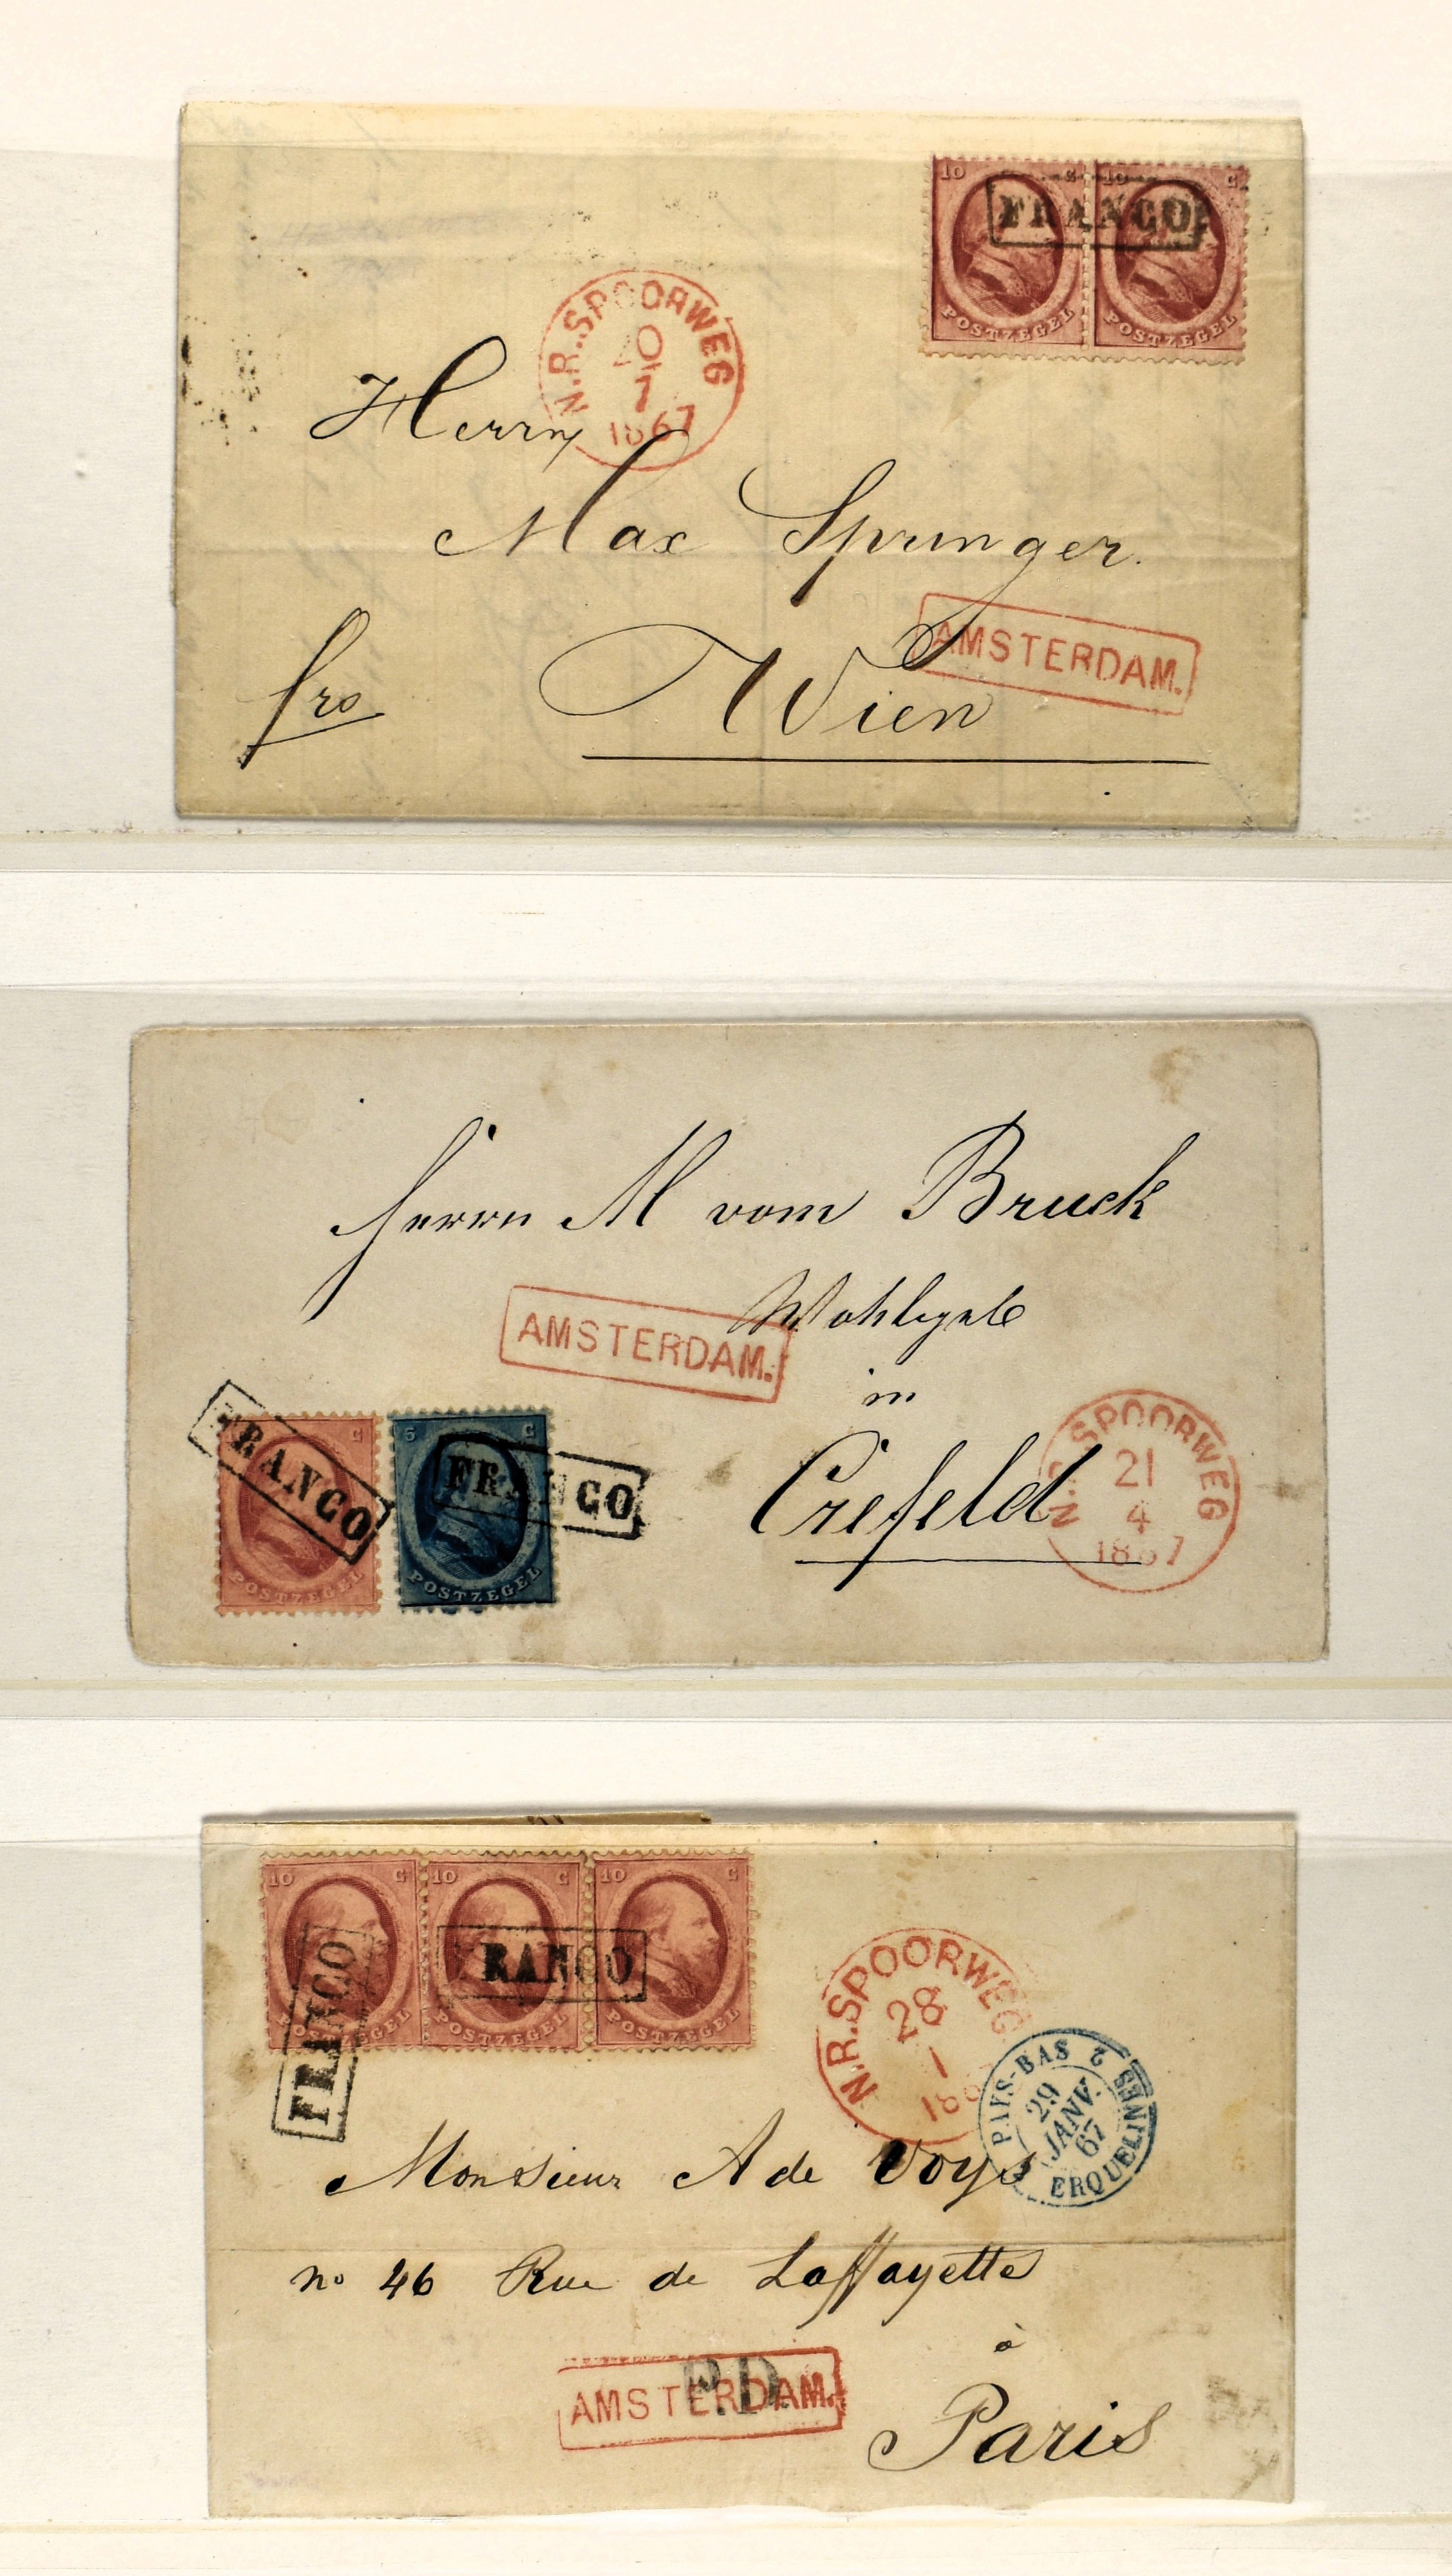 10 C 10 C
FRANCO
POSTZEGEL POSTZEGEL
N.R. SPOORWEG
20
7
1867
Herrn
Max Springer.
AMSTERDAM.
fro Wien
Herrn M vom Bruck
Wohlgeb
AMSTERDAM.
in
Crefeld
FRANCO
C
POSTZEGEL
5 C
FRANCO
POSTZEGEL
SPOORWEG
21
4
1867
10 C 10 C 10 C
FRANCO
FRANCO
POSTZEGEL POSTZEGEL POSTZEGEL
N.R. SPOORWEG
28
1
PAYS-BAS 2 ERQUELINES
29
JANV.
67
Monsieur A de Voys
no 46 Rue de Laffayette
à
AMSTERDAM.
P.D.
Paris